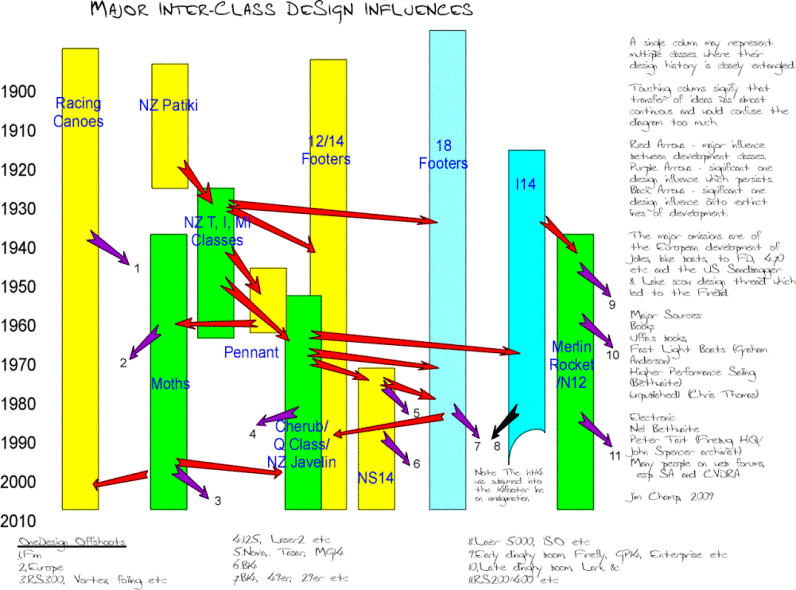 MAJOR INTER-CLASS DESIGN INFLUENCES
1900
1910
1920
1930
1940
1950
1960
1970
1980
1990
2000
2010
Racing
Canoes
NZ Patiki
NZ T, I, M
Classes
12/14
Footers
18
Footers
I14
Pennant
Moths
Cherub/
Q Class/
NZ Javelin
NS14
Merlin
Rocket
/N12
1
2
3
4
5
6
7
8
9
10
11
Note: The
was subsumed into
the
an amalgamation
A single column may represent
multiple classes where their
design history is closely entangled.
Touching columns signify that
transfer of ideas was almost
continuous and would confuse the
diagram too much
Red Arrows - major influence
between development classes.
Purple Arrows - significant one
design influence which persists.
Black Arrows - significant one
design influence into extinct
lines of development.
The major omissions are of
the European development of
Jolles, like boats, to FD, 470
etc and the US Sandbagger
& Lake scow design thread which
led to the Fireball
Major Sources:
Books
Uffa's books,
Fast Light Boats (Graham
Anderson)
Higher Performance Sailing
(Bethwaite)
unpublished) (Chris Thomas)
Electronic
Neil Bethwaite
Peter Tait (Firebug HQ/
John Spencer archivist)
Many people on web forums,
esp SA and CVDRA
Jim Champ, 2009
OneDesign Offshoots
1,Finn
2,Europe
3,RS300, Vortex, foiling etc
4,125, Laser2 etc
5,Nova, Tasar, MG14
6,B14
7,B14, 49er, 29er etc
8,Laser 5000, ISO etc
9,Early dinghy boom, Firefly, GP14, Enterprise etc
10,Late dinghy boom, Lark &c
11,RS200/400 etc